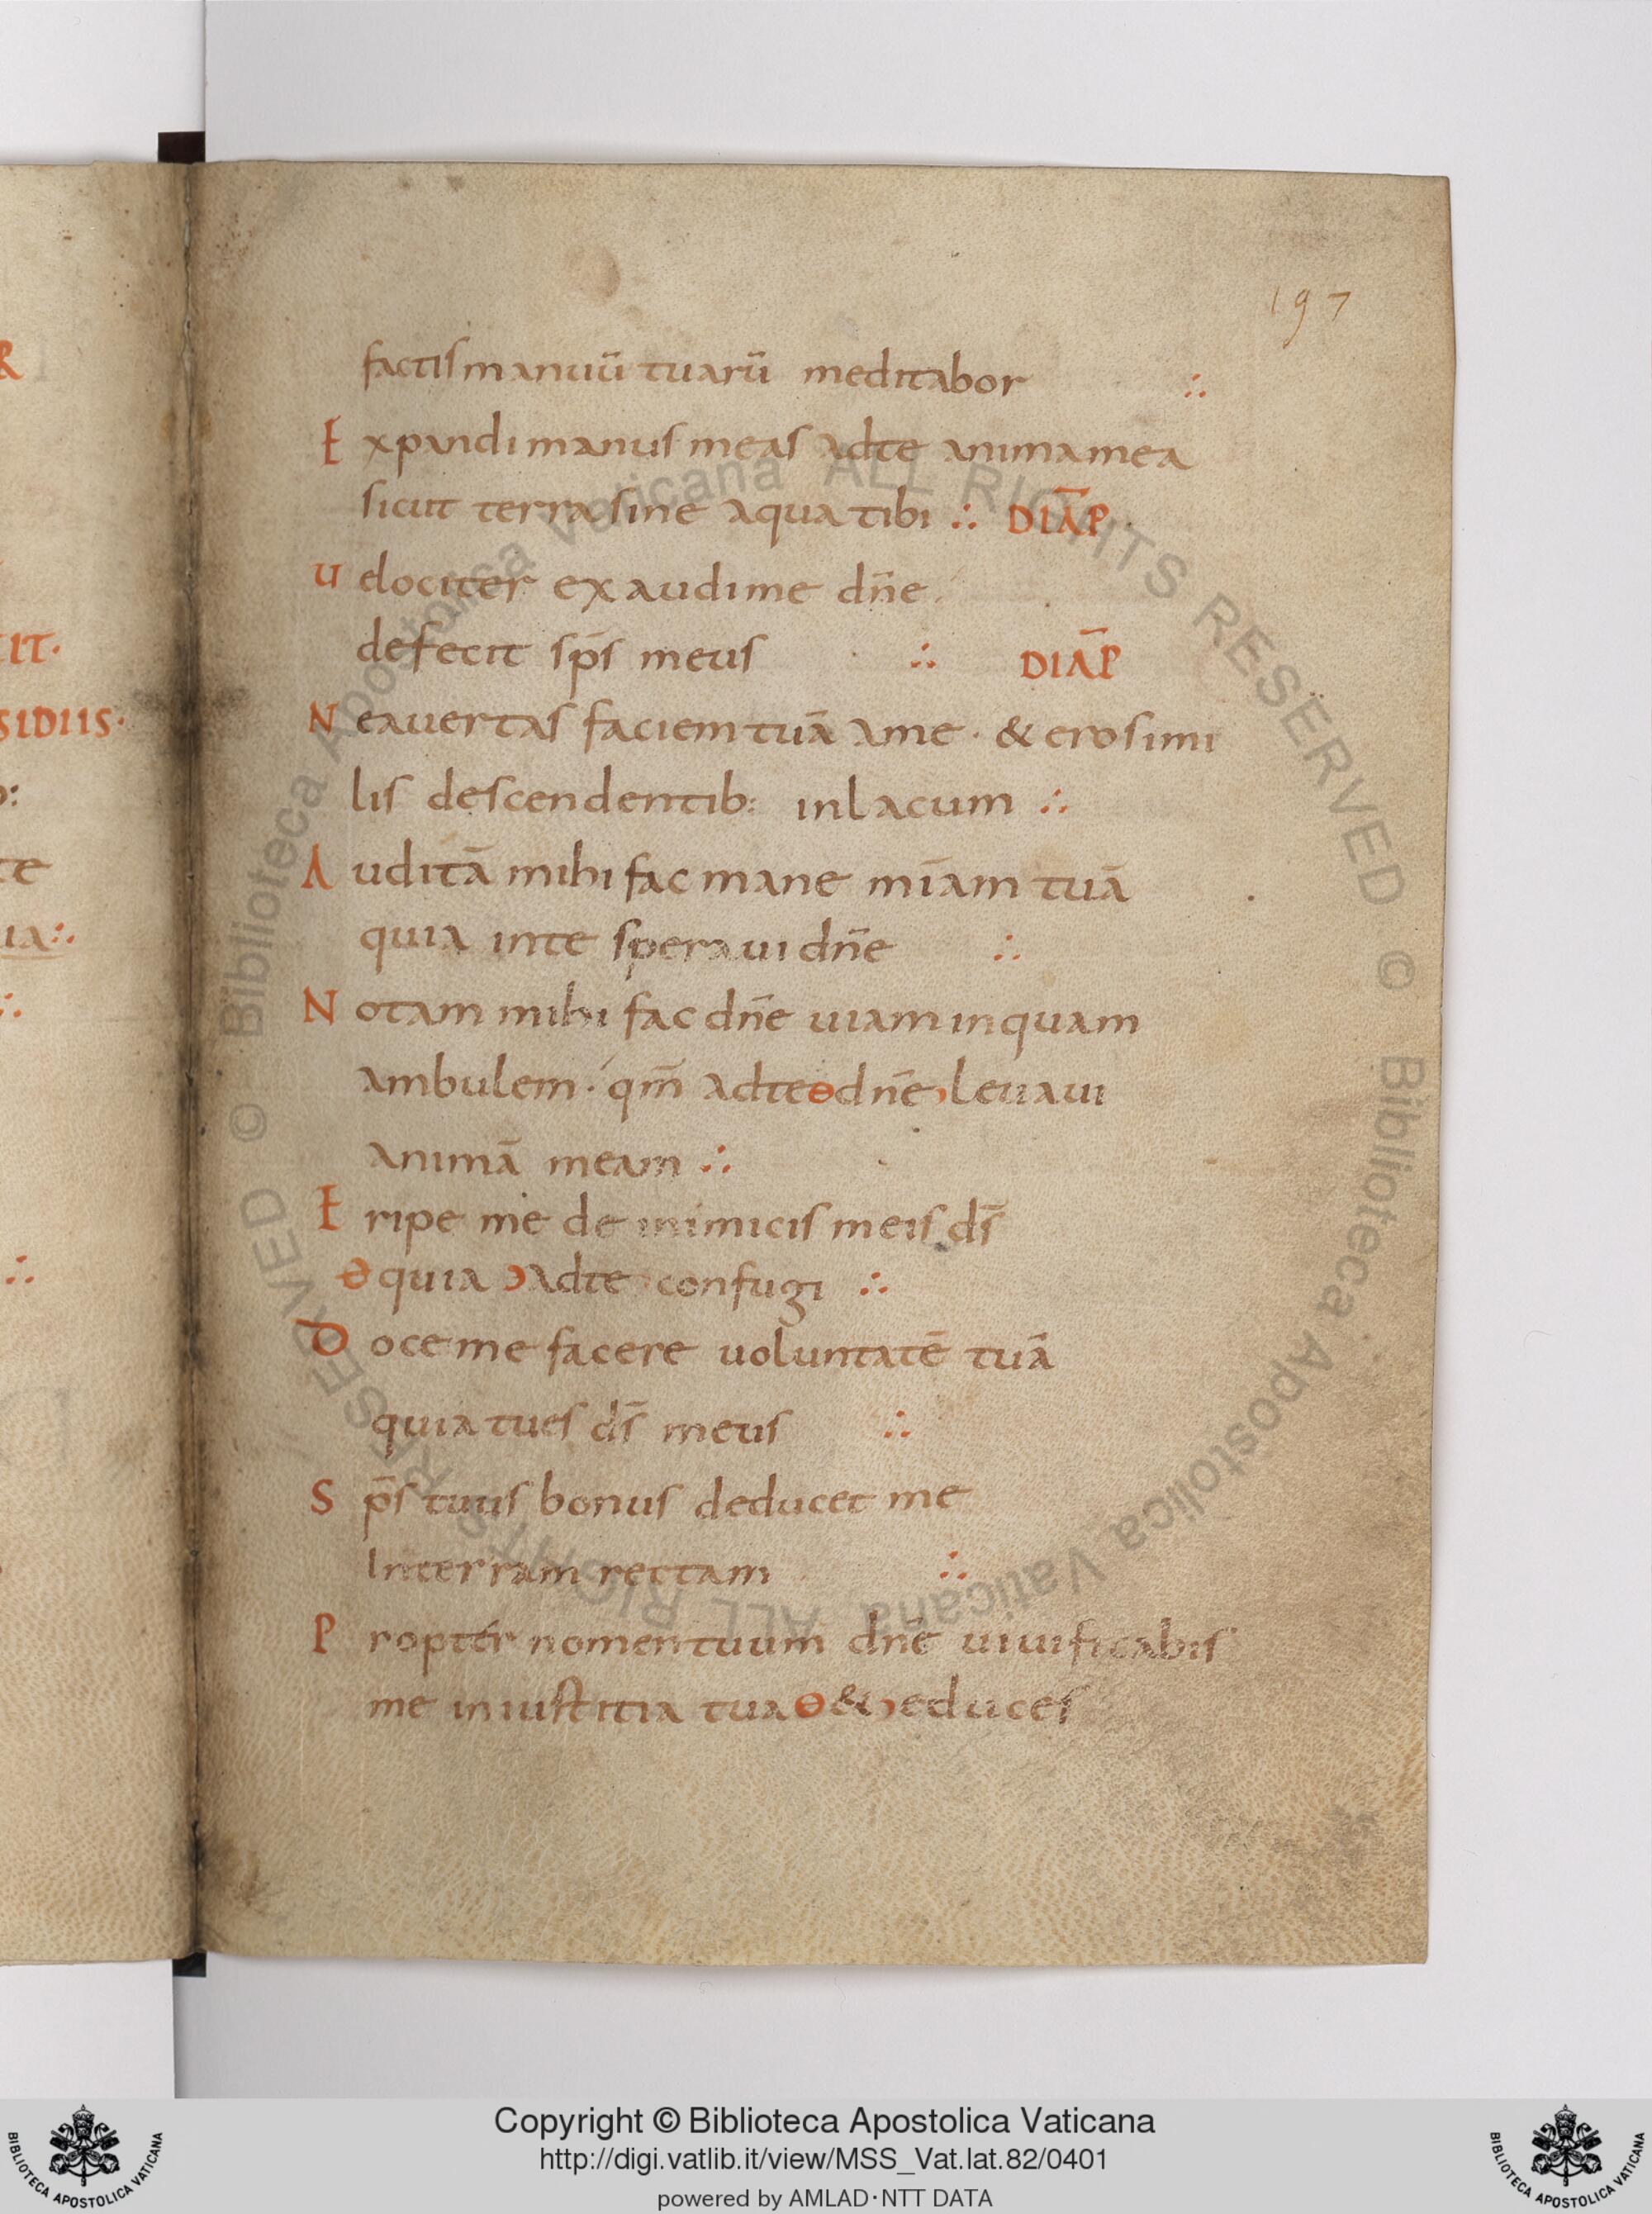 197
factis manuū tuarū meditabor ∴
Expandi manus meas ad te anima mea
sicut terra sine aqua tibi ∴ DIĀP
Uelociter exaudi me dn̄e
defecit sp̄s meus ∴ DIĀP
Ne auertas faciem tuā a me · & ero simi
lis descendentib: in lacum ∴
Auditā mihi fac mane mīam tuā
quia in te speraui dn̄e ∴
Notam mihi fac dn̄e uiam in qua m
ambulem · qm̄ ad te ɵ dn̄e ɔ leuaui
animā meam ∴
Eripe me de inimicis meis ds̄
ɵ quia ɔ ad te confugi ∴
Doce me facere uoluntatē tuā
quia tu es ds̄ meus ∴
Sp̄s tuus bonus deducet me
In terram rectam ∴
Propter nomen tuum dn̄e uiuificabis
me in iustitia tua ɵ & ɔ educes
R
IT·
SIDIIS·
te
ua ∴
© Biblioteca Apostolica Vaticana ALL RIGHTS RESERVED © Biblioteca Apostolica Vaticana ALL RIGHTS RESERVED
Copyright © Biblioteca Apostolica Vaticana
http://digi.vatlib.it/view/MSS_Vat.lat.82/0401
powered by AMLAD·NTT DATA
BIBLIOTECA APOSTOLICA VATICANA
BIBLIOTECA APOSTOLICA VATICANA